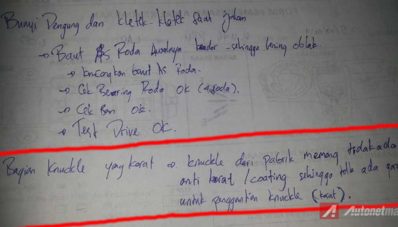 Bunyi Dengung dan kletek-kletek saat jalan
→ Baut As Roda kendor sehingga
→ kencangkan baut As Roda.
→ Cek Bearing Roda OK (4 roda)
→ Cek Ban OK.
→ Test Drive OK.
Bagian Knuckle yang karat → knuckle dari pabrik memang tidak ada
anti karat /coating sehingga tdk ada
untuk penggantian knuckle (karat).
Autonetma